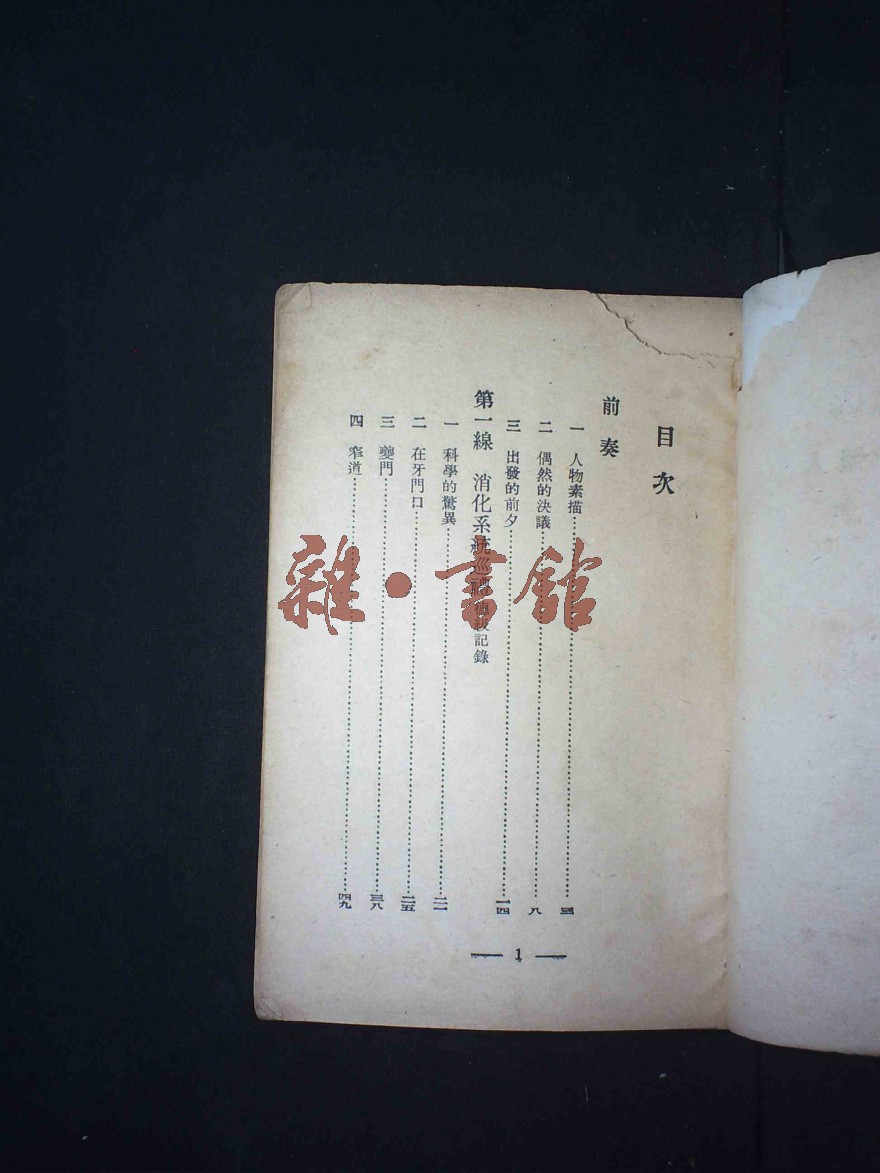 目次
前奏
一 人物素描……三
二 偶然的決議……八
三 出發的前夕……一四
第一線 消化系統巡禮 記錄
一 科學的驚異……二一
二 在牙門口……二五
三 夔門……三八
四 窄道……四九
— 1 —
雜·書館